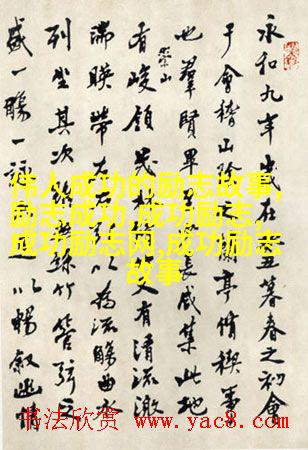 永和九年歲在丑暮春之初會
于會稽山陰亭脩禊事
也羣賢畢至長咸集此地
有崇山峻領茂林又有清流激
湍暎帶左右引以為流觴曲水
列坐其次絲竹管弦之
盛一觴一詠以暢敘幽情
伟人成功的励志故事,
励志成功,成功励志,
成功励志网,成功励志
故事
书法欣赏 www.yac8.com